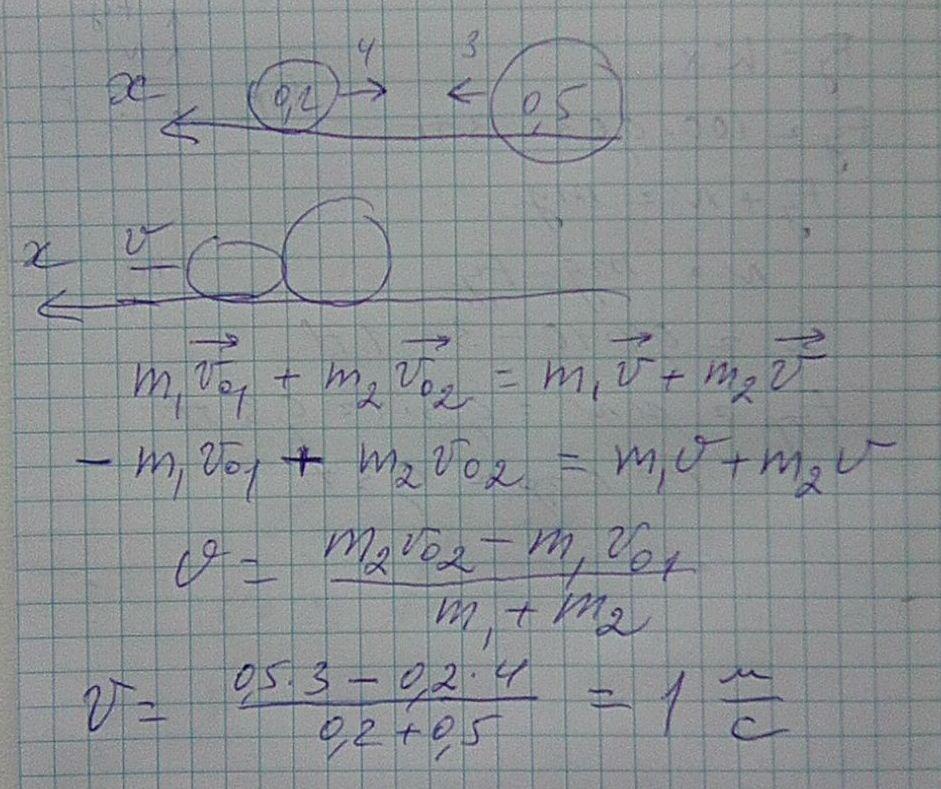 4 3
x 0,2 0,5
x v
m₁v⃗₀₁ + m₂v⃗₀₂ = m₁v⃗ + m₂v⃗
- m₁v₀₁ + m₂v₀₂ = m₁v + m₂v
v = (m₂v₀₂ - m₁v₀₁) / (m₁ + m₂)
v = (0,5·3 - 0,2·4) / (0,2 + 0,5) = 1 м/с